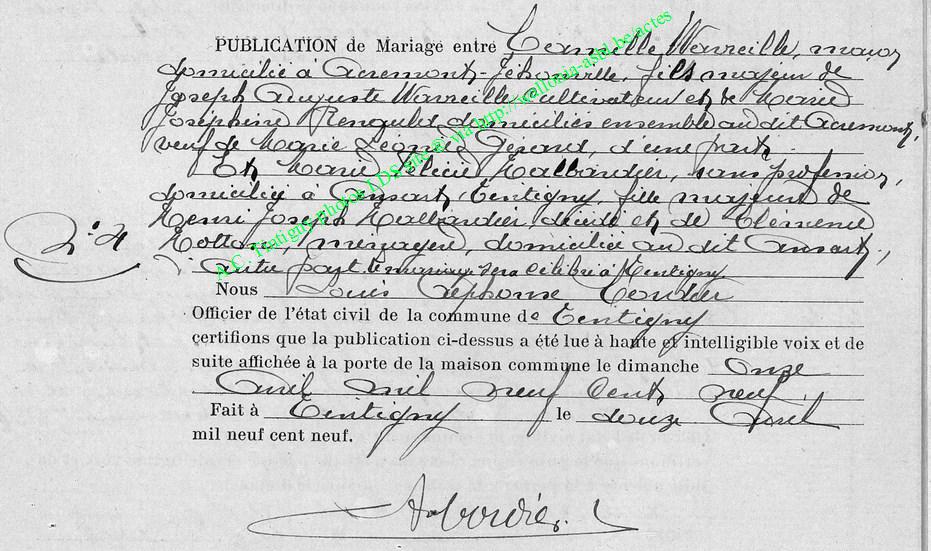 PUBLICATION de Mariage entre Camille Wavreille, maçon
domicilié à Acremont-Jehonville, fils majeur de
Joseph Auguste Wavreille cultivateur et de Marie
Josephine domiciliés ensemble au dit Acremont,
veuf de Marie Léonie Gerard, d'une part
Et Marie Félicie Halbardier, sans profession,
domiciliée à Ansart-Tintigny, fille majeure de
Henri Joseph Halbardier, décédé et de Clémence
Hotton, ménagère, domiciliée au dit Ansart,
N° 4
d'autre part le mariage sera célébré à Tintigny
Nous Louis Alphonse
Officier de l'état civil de la commune de Tintigny
certifions que la publication ci-dessus a été lue à haute et intelligible voix et de
suite affichée à la porte de la maison commune le dimanche onze
avril mil neuf cent neuf.
Fait à Tintigny le douze avril
mil neuf cent neuf.
A.C. Tintigny photos LDS site © via http://wallonia-asbl.be/actes